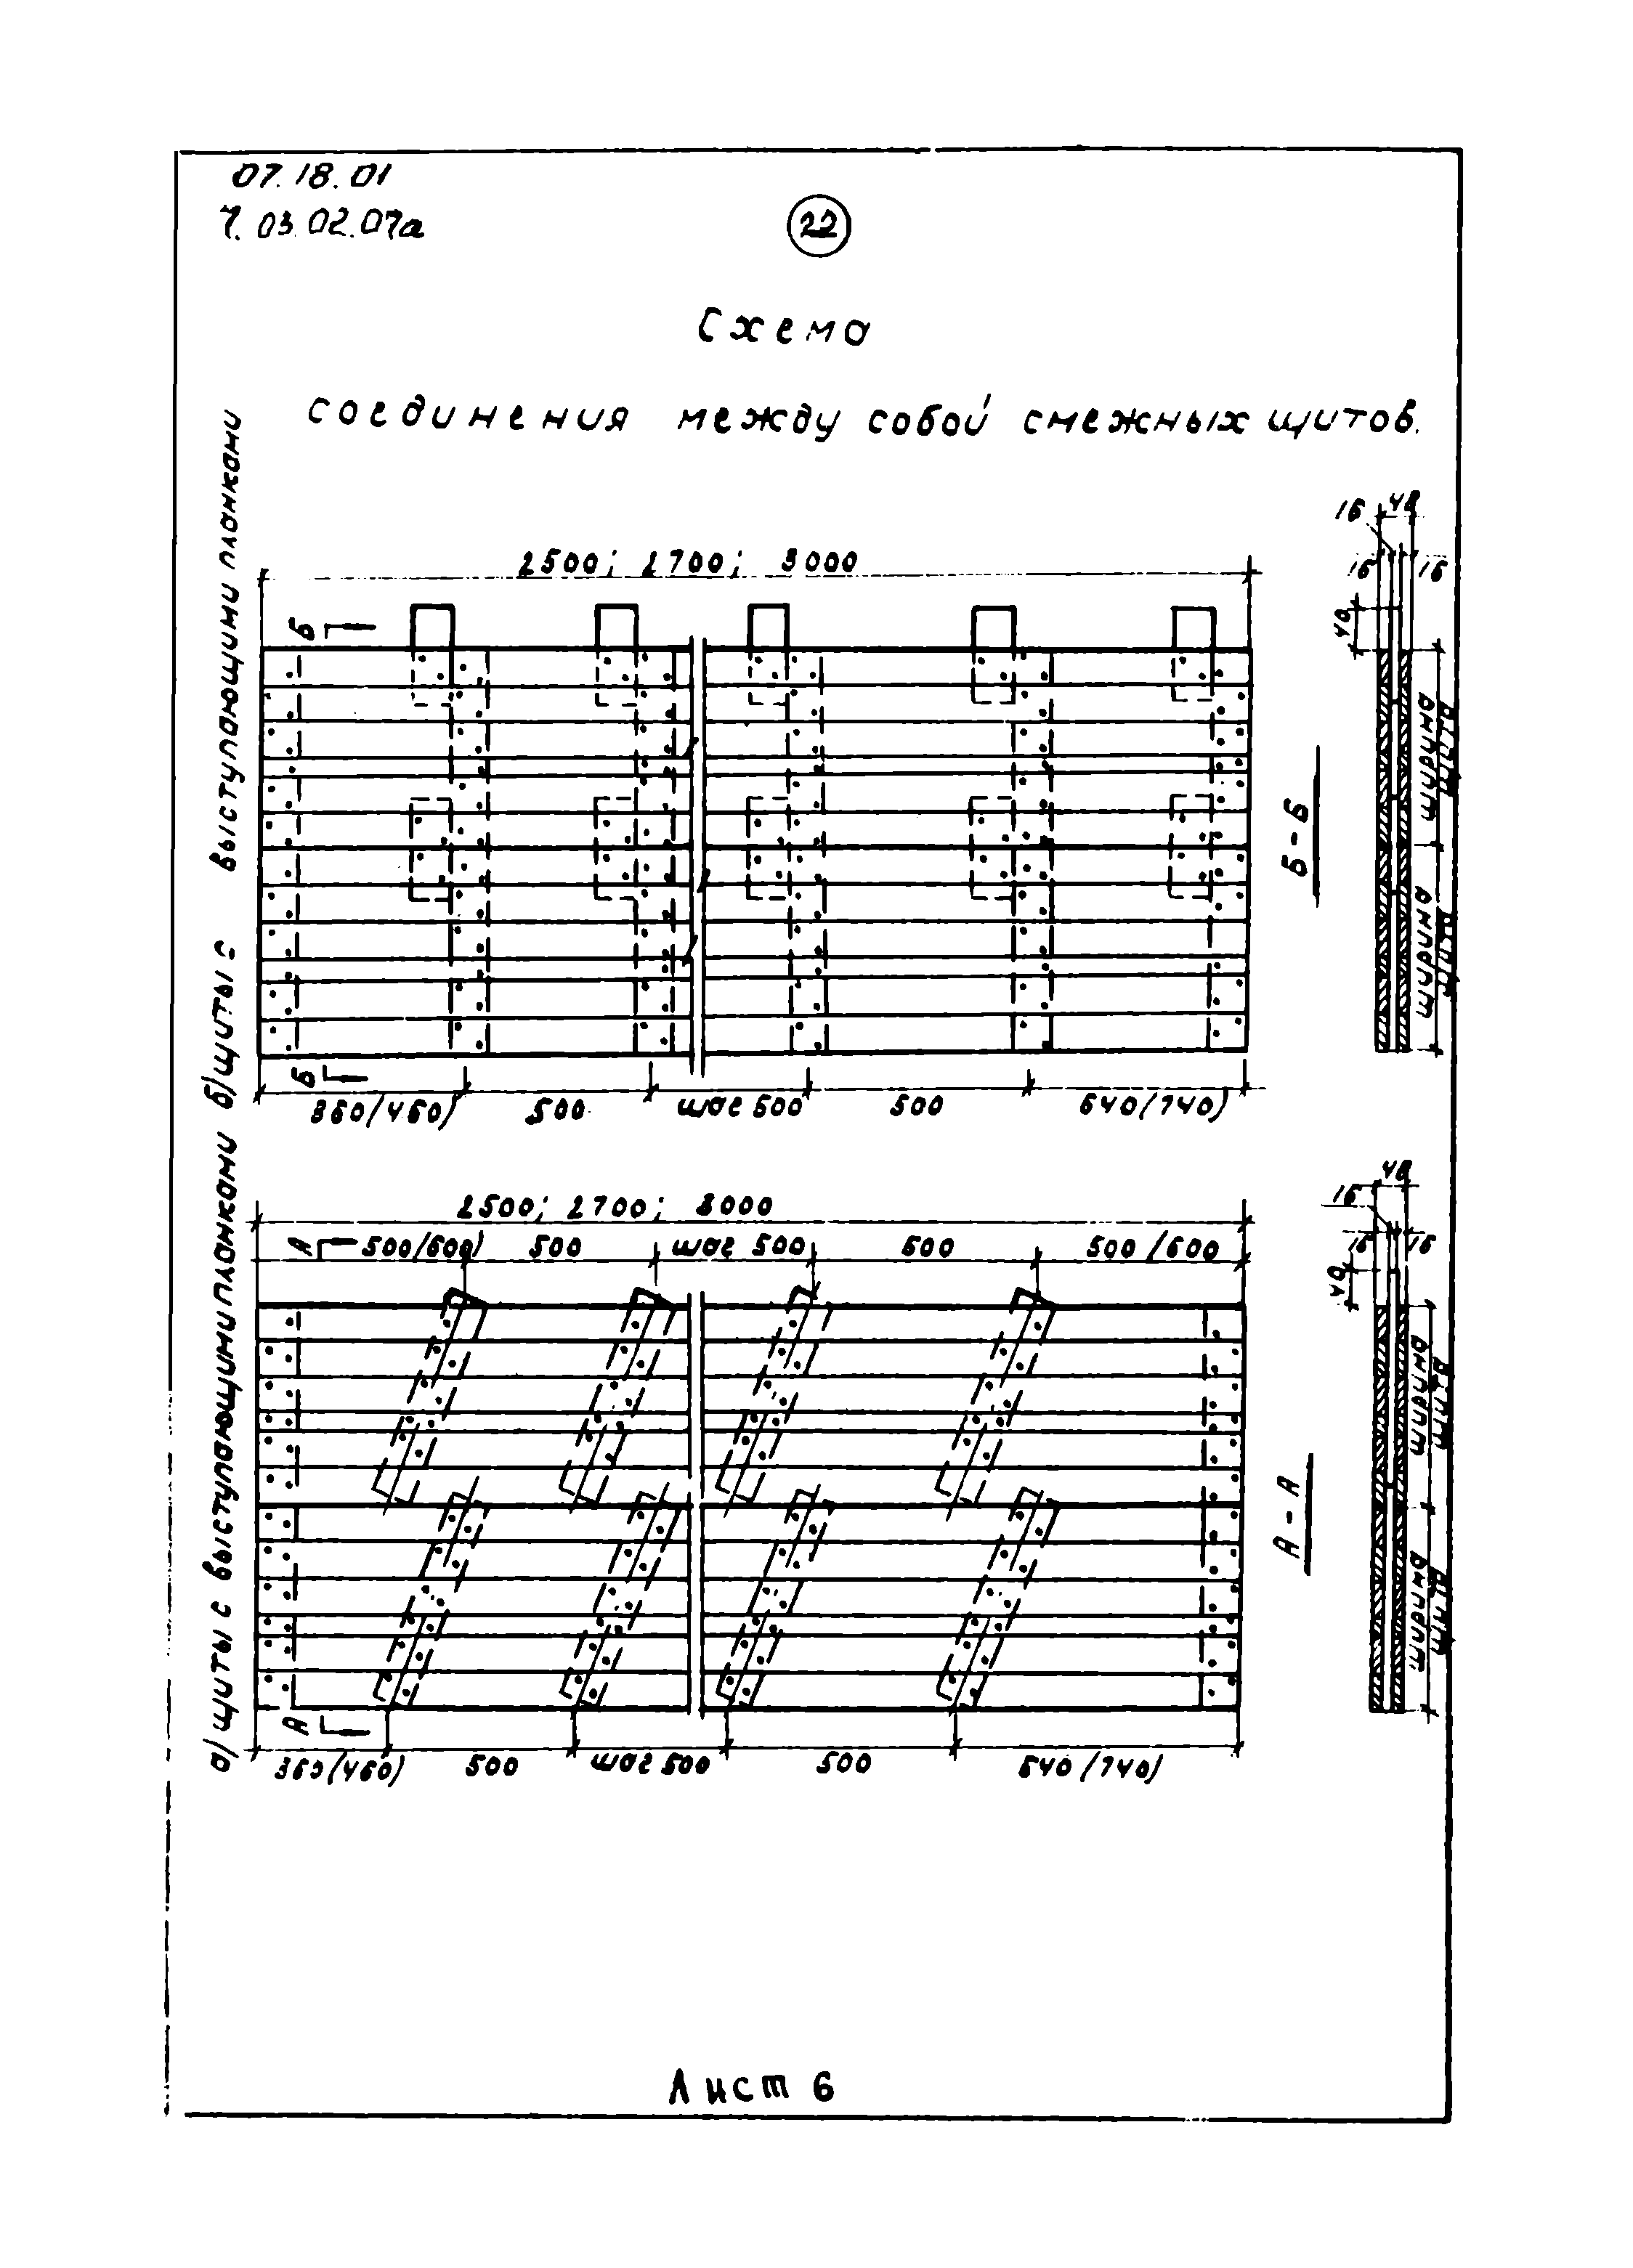 07.18.01
7.03.02.07а
22
Схема
соединения между собой смежных щитов.
б) щиты с выступающими планками
2500; 2700; 3000
Б
Б
360/460)
500
шаг 500
500
640/740)
Б - Б
16
48
16
16
40
ширина щита
ширина щита
а) щиты с выступающими планками
2500; 2700; 3000
А
500/600)
500
шаг 500
500
500/600
А
360/460)
500
шаг 500
500
640/740)
А - А
16
48
16
16
40
ширина щита
Лист 6